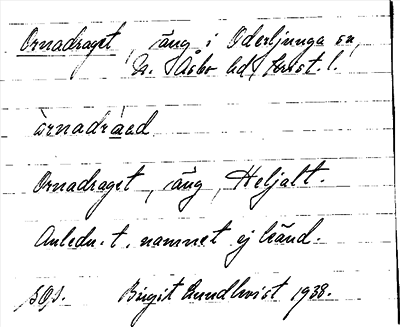 Ornadraget, äng i Oderljunga sn,
N. Åsbo hd, Krist. l.
òrnadràed
Ornadraget, äng, Heljalt.
Anledn. t. namnet ej känd.
Birgit Lundkvist 1938.